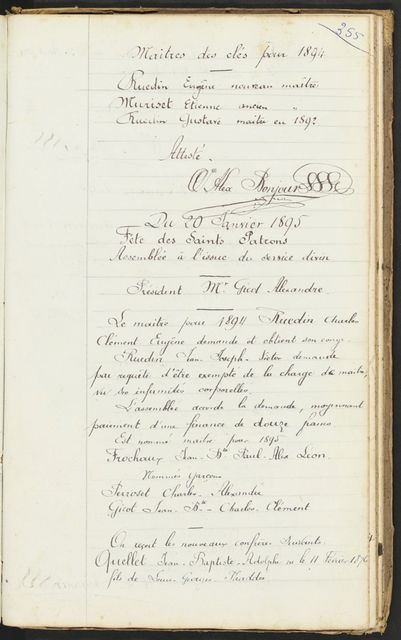 355
Maîtres des clés pour 1894
Ruedin Eugène nouveau maître
Muriset Etienne ancien "
Ruedin Gustave maître en 1892
Attesté.
Alex Bonjour
Du 20 Janvier 1895
Fête des Saints Patrons
Assemblée à l'issue du service divin
Président Mr Gicot Alexandre
Le maître pour 1894 Ruedin Charles
Clément Eugène demande et obtient son congé
Ruedin Jean Joseph Victor demande
par requête d'être exempté de la charge de maître,
vu ses infirmités corporelles.
L'assemblée accorde la demande, moyennant
paiement d'une finance de douze francs
Est nommé maître pour 1895
Frochaux Jean Bte Paul Alex Léon.
Nommés garçons
Perroset Charles Alexandre
Gicot Jean Bte Charles Clément
On reçoit les nouveaux confrères suivants
Quellet Jean Baptiste Adolphe né le 11 Février
fils de Louis Georges Thaddée